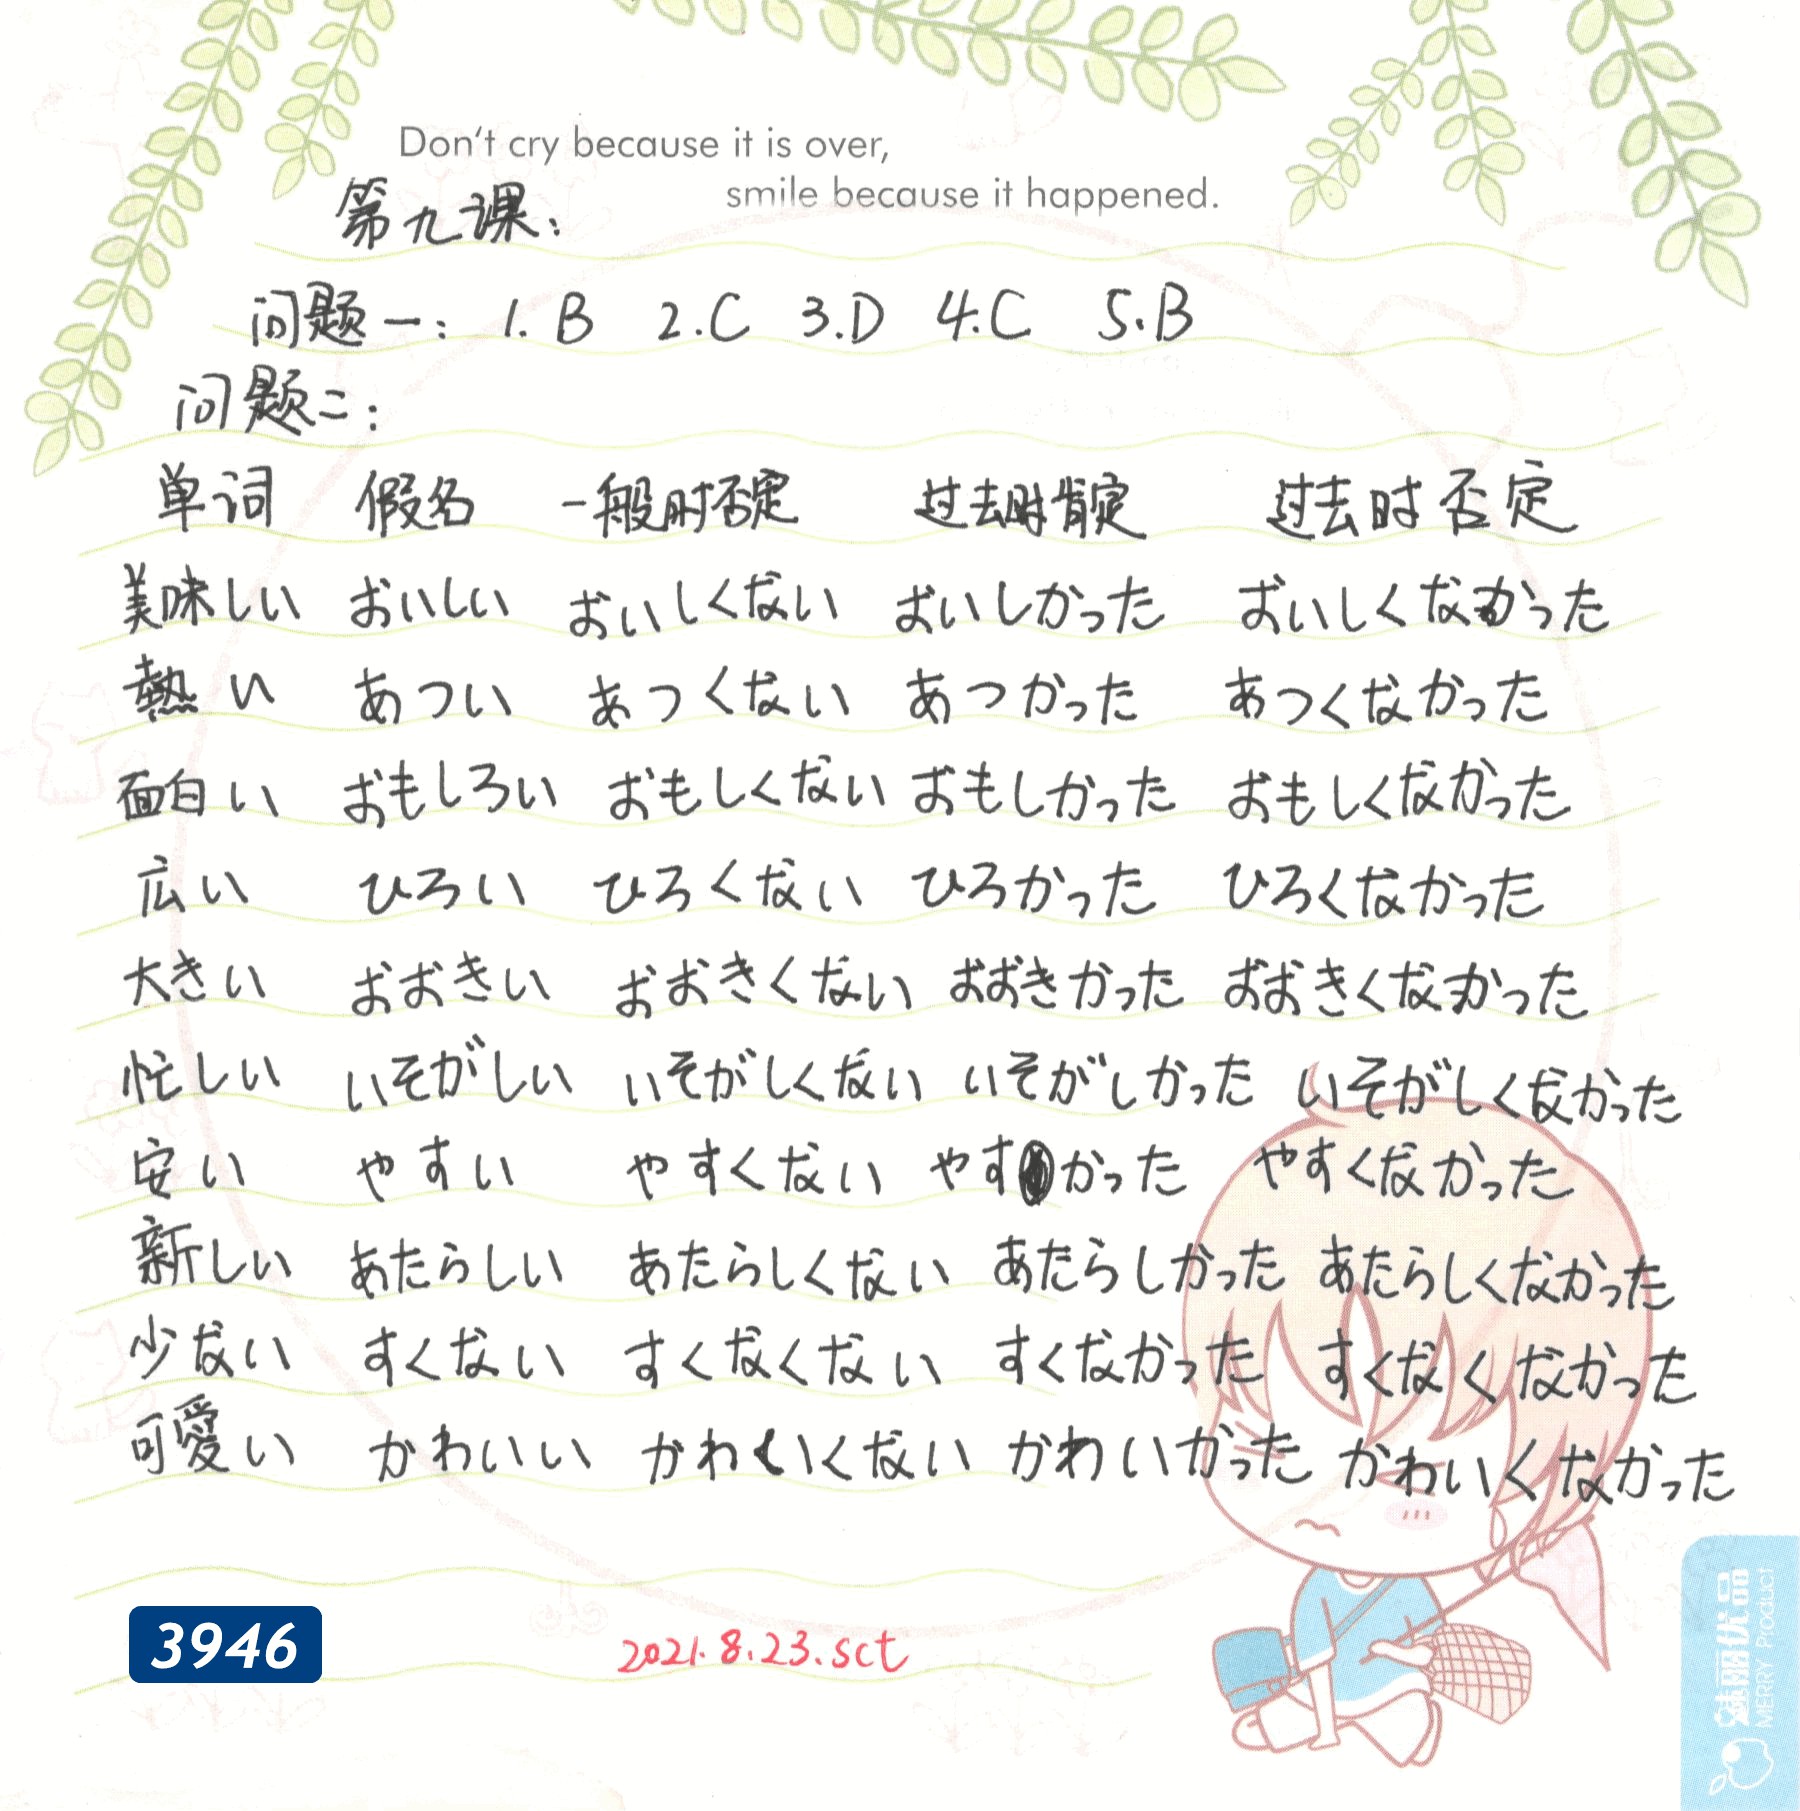 Don't cry because it is over,
smile because it happened.
第九课:
问题一: 1. B 2. C 3. D 4. C 5. B
问题二:
单词 假名 一般时否定 过去时肯定 过去时否定
美味しい おいしい おいしくない おいしかった おいしくなかった
熱い あつい あつくない あつかった あつくなかった
面白い おもしろい おもしくない おもしかった おもしくなかった
広い ひろい ひろくない ひろかった ひろくなかった
大きい おおきい おおきくない おおきかった おおきくなかった
忙しい いそがしい いそがしくない いそがしかった いそがしくなかった
安い やすい やすくない やすかった やすくなかった
新しい あたらしい あたらしくない あたらしかった あたらしくなかった
少ない すくない すくなくない すくなかった すくなくなかった
可愛い かわいい かわいくない かわいかった かわいくなかった
3946
2021.8.23.sct
魅丽优品
MERRY Product